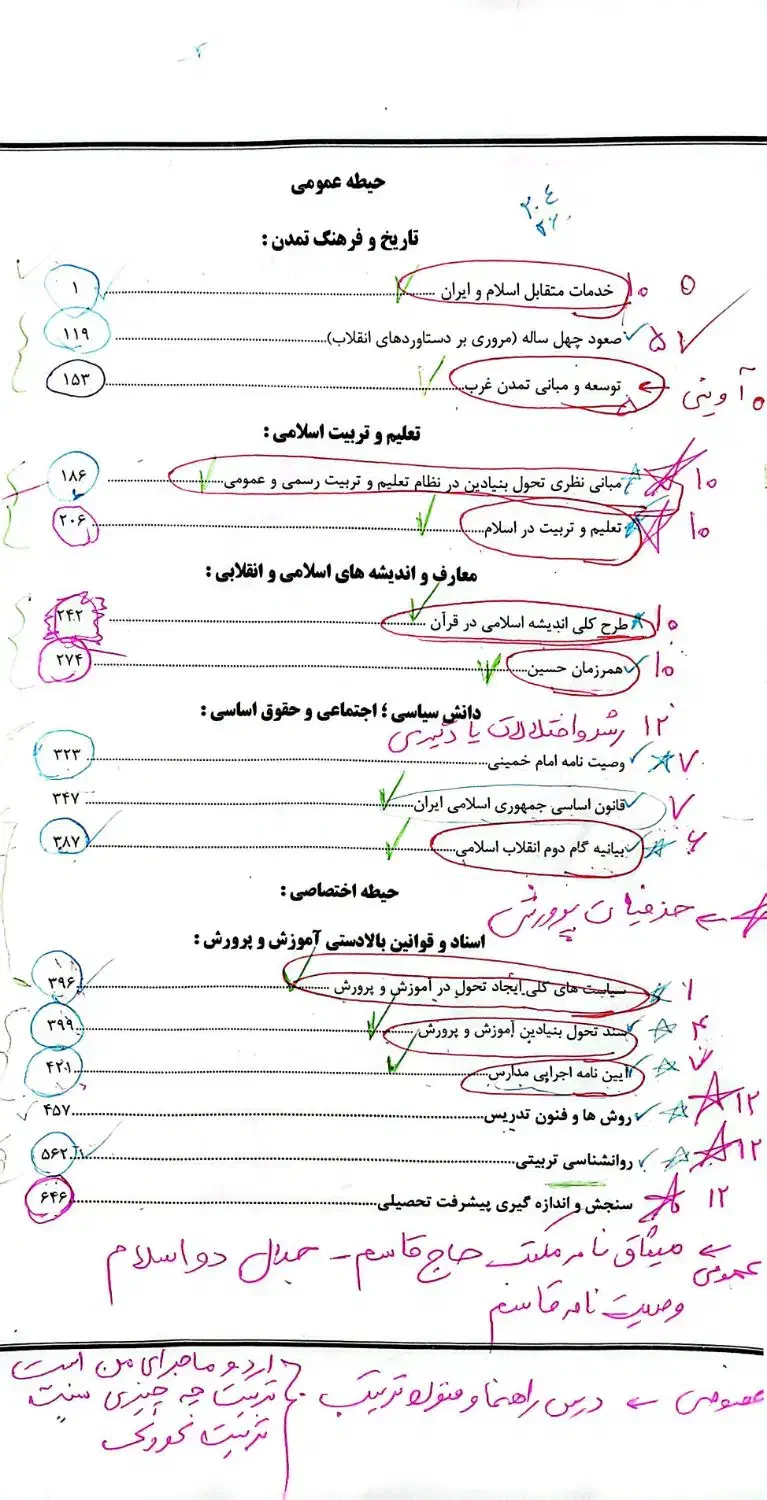 حیطه عمومی
۲۰۴
تاریخ و فرهنگ تمدن :
۵ ۱۰ خدمات متقابل اسلام و ایران ........ ۱
۵ صعود چهل ساله (مروری بر دستاوردهای انقلاب)........ ۱۱۹
آوینی ← توسعه و مبانی تمدن غرب........ ۱۵۳
تعلیم و تربیت اسلامی :
۱۰ مبانی نظری تحول بنیادین در نظام تعلیم و تربیت رسمی و عمومی........ ۱۸۶
۱۰ تعلیم و تربیت در اسلام........ ۲۰۶
معارف و اندیشه های اسلامی و انقلابی :
۱۰ طرح کلی اندیشه اسلامی در قرآن ........ ۲۴۲
۱۰ همرزمان حسین........ ۲۷۴
دانش سیاسی ؛ اجتماعی و حقوق اساسی :
۱۲ رشد و اختلالات یادگیری
۷ وصیت نامه امام خمینی........ ۳۲۳
۷ قانون اساسی جمهوری اسلامی ایران........ ۳۴۷
۶ بیانیه گام دوم انقلاب اسلامی........ ۳۸۷
حیطه اختصاصی :
← حذفیات پرورش
اسناد و قوانین بالادستی آموزش و پرورش :
۱ سیاست های کلی ایجاد تحول در آموزش و پرورش ........ ۳۹۶
۴ سند تحول بنیادین آموزش و پرورش ........ ۳۹۹
۷ آیین نامه اجرایی مدارس........ ۴۲۱
۱۲ روش ها و فنون تدریس........ ۴۵۷
۱۲ روانشناسی تربیتی........ ۵۶۲
۱۲ سنجش و اندازه گیری پیشرفت تحصیلی........ ۶۴۶
عمومی ← میثاق نامه مکتب حاج قاسم - جدال دو اسلام
وصیت نامه قاسم
← درس راهنما و
اردو ماجرای من است
تربیت چه چیزی نیست
تربیت